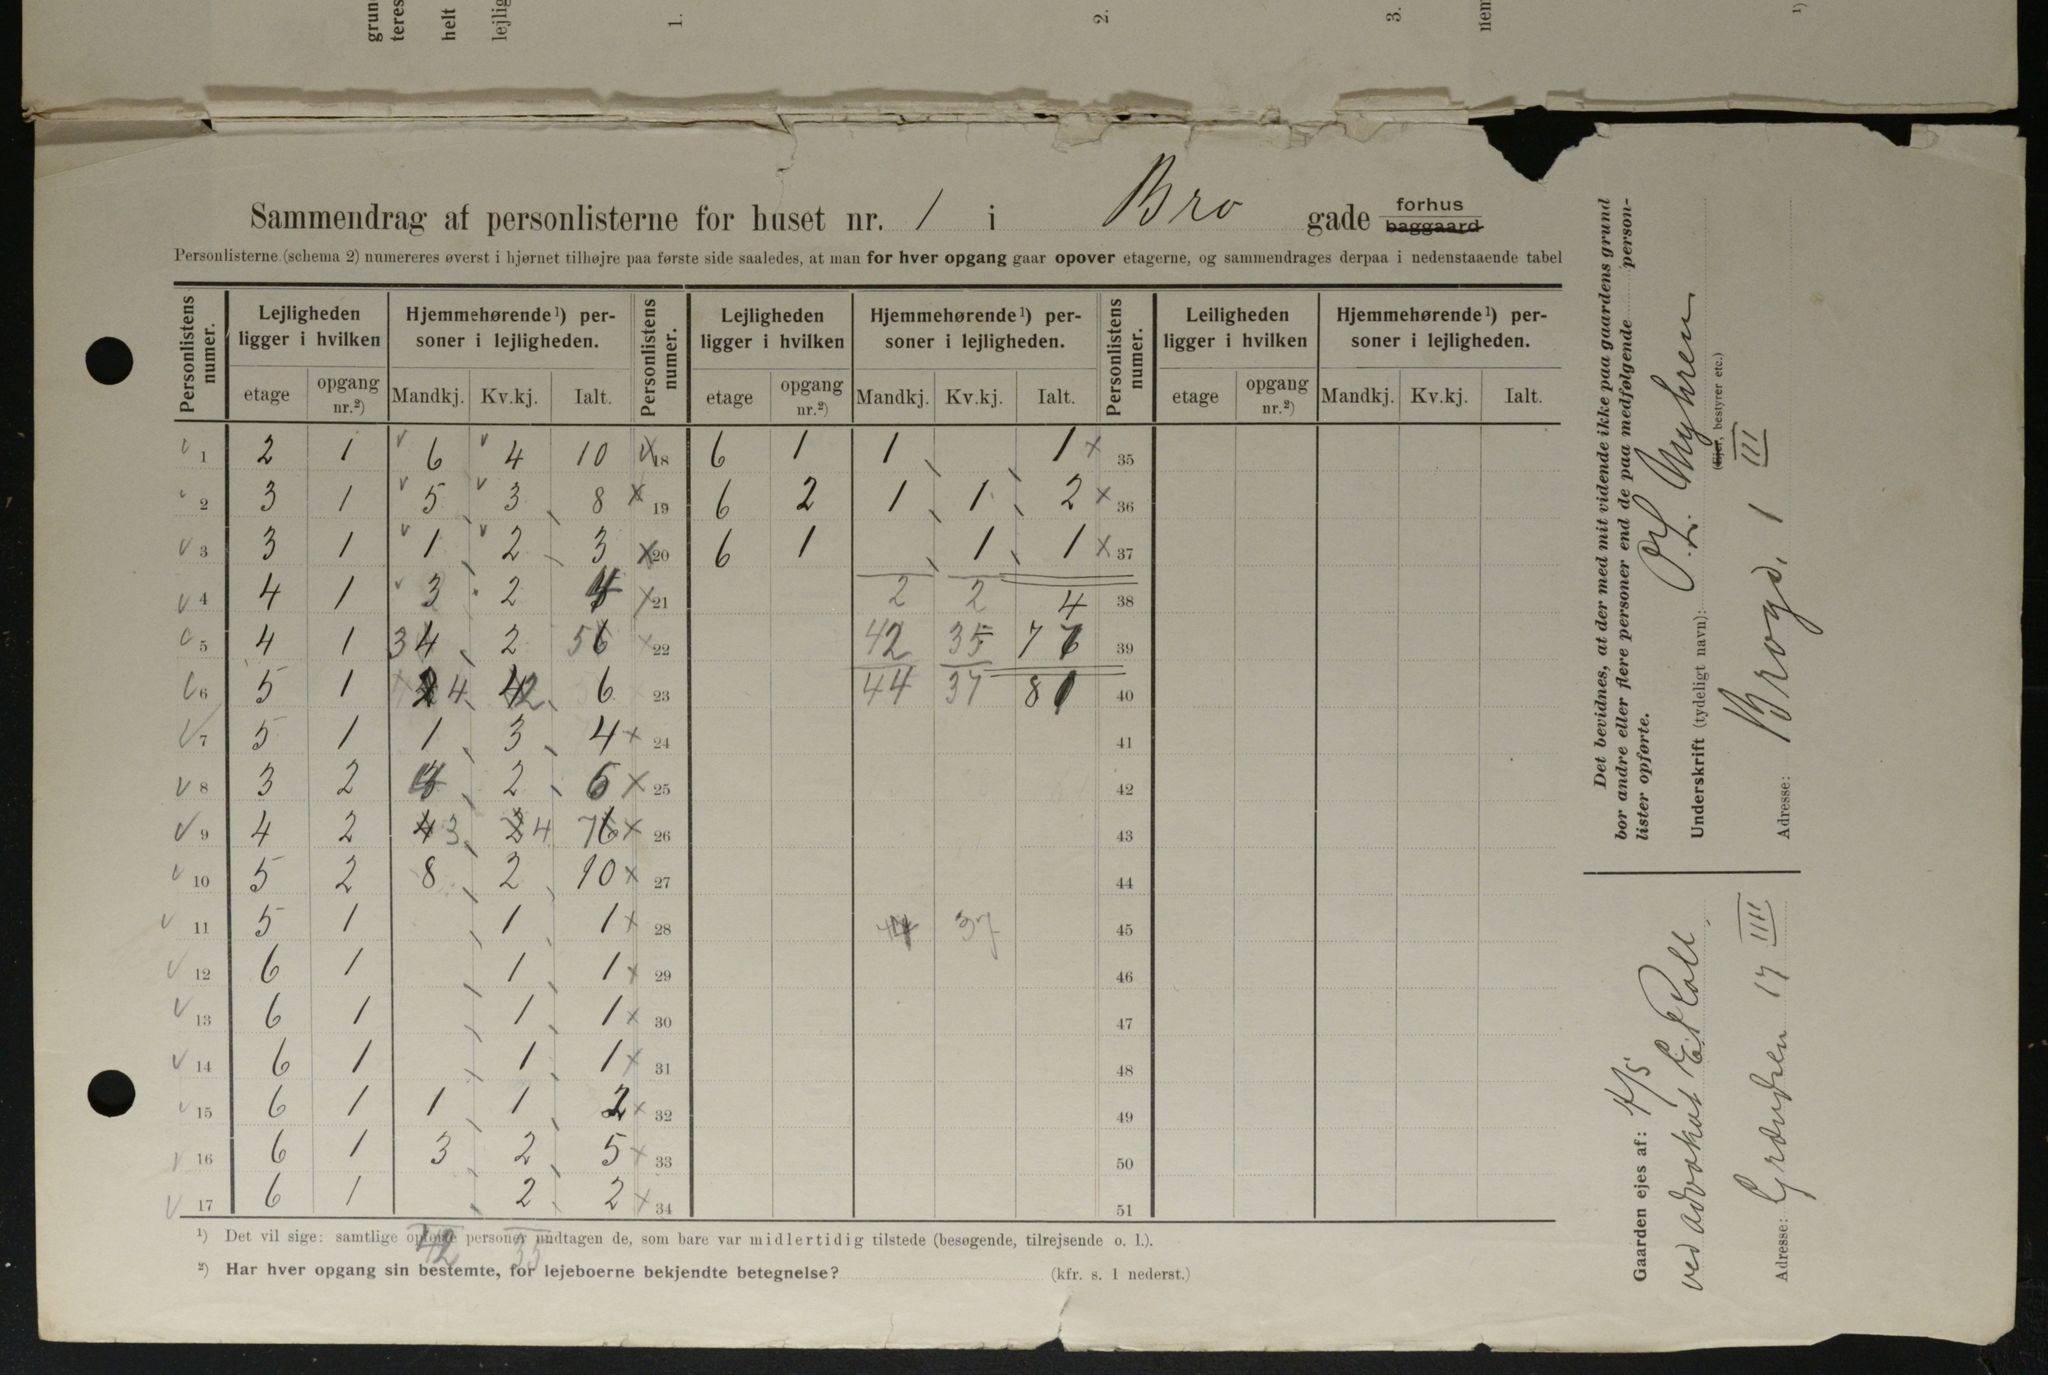 grun
teres
helt
lejlig
1.
2.
3.
nem
1)
Sammendrag af personlisterne for huset nr. 1 i Bro gade forhus baggaard
Personlisterne (schema 2) numereres øverst i hjørnet tilhøjre paa første side saaledes, at man for hver opgang gaar opover etagerne, og sammendrages derpaa i nedenstaaende tabel
Personlistens numer. Lejligheden ligger i hvilken Hjemmehørende¹) personer i lejligheden. Personlistens numer. Lejligheden ligger i hvilken Hjemmehørende¹) personer i lejligheden. Personlistens numer. Leiligheden ligger i hvilken Hjemmehørende¹) personer i lejligheden.
etage opgang nr.²) Mandkj. Kv.kj. Ialt. etage opgang nr.²) Mandkj. Kv.kj. Ialt. etage opgang nr.²) Mandkj. Kv.kj. Ialt.
1 2 1 6 4 10 18 6 1 1 1 35
2 3 1 5 3 8 19 6 2 1 1 2 36
3 3 1 1 2 3 20 6 1 1 1 37
4 4 1 3 2 21 2 2 4 38
5 4 1 3 4 2 5 6 22 42 35 7 39
6 5 1 4 2 6 23 44 37 8 40
7 5 1 1 3 4 24 41
8 3 2 2 6 25 42
9 4 2 4 3 2 4 7 6 26 43
10 5 2 8 2 10 27 44
11 5 1 1 1 28 44 37 45
12 6 1 1 1 29 46
13 6 1 1 1 30 47
14 6 1 1 1 31 48
15 6 1 1 1 2 32 49
16 6 1 3 2 5 33 50
17 6 1 2 2 34 51
42 35
¹) Det vil sige: samtlige opførte personer undtagen de, som bare var midlertidig tilstede (besøgende, tilrejsende o. l.).
²) Har hver opgang sin bestemte, for lejeboerne bekjendte betegnelse? (kfr. s. 1 nederst.)
Det bevidnes, at der med mit vidende ikke paa gaardens grund
bor andre eller flere personer end de paa medfølgende personlister opførte.
Underskrift (tydeligt navn): O. L. Myhren
(Ejer, bestyrer etc.)
Adresse: Brogd. 1 III
Gaarden ejes af: A/S
ved advokat E. Roll.
Adresse: Grændsen 17 III